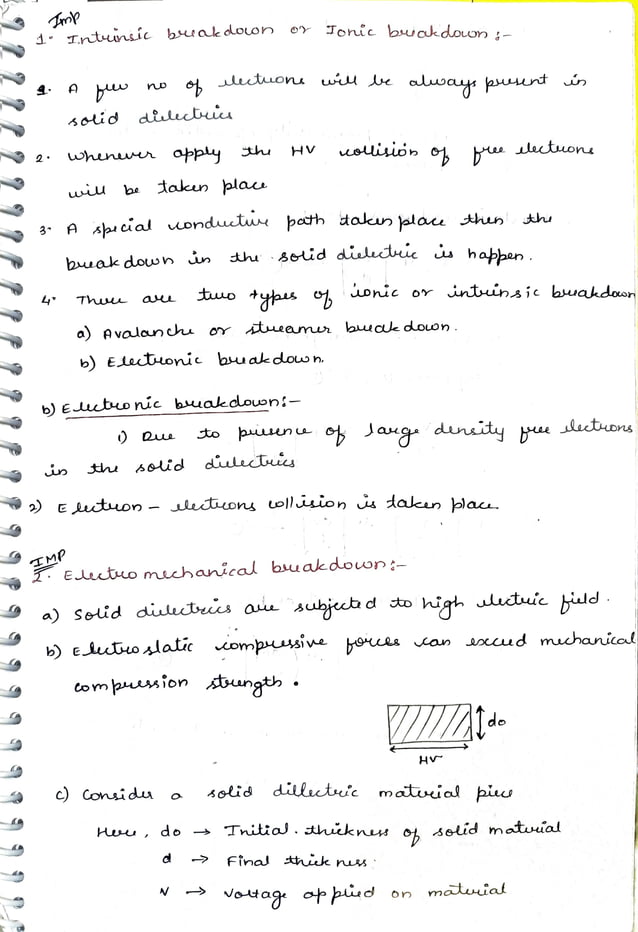 Imp
1. Intrinsic breakdown or Ionic breakdown :-
1. A few no of electrons will be always present in
solid dielectrics
2. Whenever apply the HV collision of free electrons
will be taken place
3. A special conductive path taken place then the
breakdown in the solid dielectric is happen.
4. There are two types of ionic or intrinsic breakdown
a) Avalanche or streamer breakdown.
b) Electronic breakdown.
b) Electronic breakdown:-
1) Due to presence of large density free electrons
in the solid dielectrics
2) Electron - electrons collision is taken place.
IMP
2. Electro mechanical breakdown:-
a) Solid dielectrics are subjected to high electric field.
b) Electro static compressive forces can exceed mechanical
compression strength.
do
HV
c) Consider a solid dillectric material piece
Here, do → Initial thickness of solid material
d → Final thickness.
V → Voltage applied on material